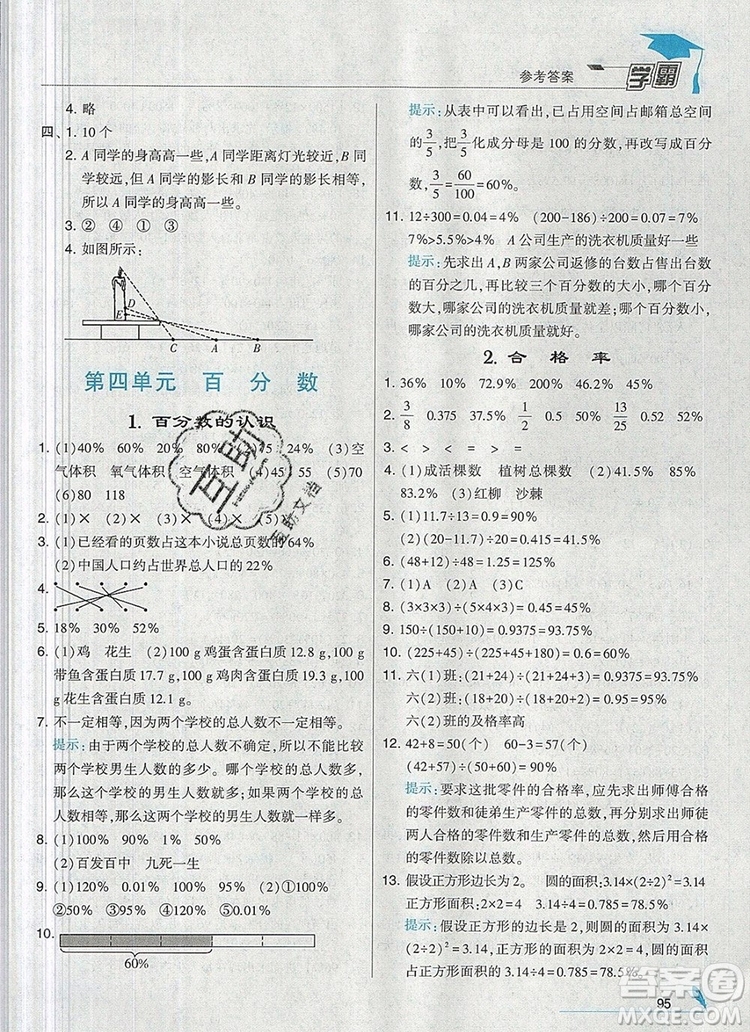 参考答案 学霸
4. 略
四、1. 10个
2. A同学的身高高一些,A同学距离灯光较近,B同
学较远,但A同学的影长和B同学的影长相等,
所以A同学的身高高一些。
3. ② ④ ① ③
4. 如图所示:
D
E
C A B
第四单元 百分数
1. 百分数的认识
1. (1)40% 60% 20% 80%
75% 24% (3)空
气体积 氧气体积 空气体积 (4)45 55 (5)70
(6)80 118
2. (1)× (2)× (3)× (4)× (5)
3. (1)已经看的页数占这本小说总页数的64%
(2)中国人口约占世界总人口的22%
4.
5. 18% 30% 52%
6. (1)鸡 花生 (2)100 g鸡蛋含蛋白质12.8 g,100 g
带鱼含蛋白质17.7 g,100 g鸡肉含蛋白质19.3 g,100
g花生含蛋白质12.1 g。
7. 不一定相等,因为两个学校的总人数不一定相等。
提示:由于两个学校的总人数不确定,所以不能比较
两个学校男生人数的多少。哪个学校的总人数多,
哪个学校的男生人数就多;如果两个学校的总人数一
样多,那么两个学校的男生人数就一样多。
8. (1)100% 90% 1% 50%
(2)百发百中 九死一生
9. (1)120% 0.01% 100% (2)①100%
②50% ③95% ④120% ⑤0.01%
10.
60%
提示:从表中可以看出,已占用空间占邮箱总空间
的3/5,把3/5化成分母是100的分数,再改写成百分
数,3/5=60/100=60%。
11. 12÷300=0.04=4% (200-186)÷200=0.07=7%
7%>5.5%>4% A公司生产的洗衣机质量好一些
提示:先求出A,B两家公司返修的台数占售出台数
的百分之几,再比较三个百分数的大小,哪家公司百
分数大,哪家公司的洗衣机质量就差;百分数小,
哪家公司的洗衣机质量就好。
2. 合格率
1. 36% 10% 72.9% 200% 46.2% 45%
2. 3/8 0.375 37.5% 1/2 0.5 50% 13/25 0.52 52%
3. < > < = > =
4. (1)成活棵数 植树总棵数 (2)80% 85%
83.2% (3)红柳 沙棘
5. (1)11.7÷13=0.9=90%
(2)(20-11.7)÷20=0.415=41.5%
6. (48+12)÷(48+12)=1=100%
7. (1)A (2)A (3)C
8. (3×3×3)÷(5×3×4)=0.45=45%
9. 150÷(150+10)=0.9375=93.75%
10. (225+45)÷(225+45+18)=0.9375=93.75%
11. 六(1)班:(21+24)÷(21+24+3)=0.9375=93.75%
六(2)班:(18+20)÷(18+20+2)=0.95=95%
六(2)班的及格率高
12. 42+8=50(个) 60-3=57(个)
(42+57)÷(50+60)=0.9=90%
提示:要求这批零件的合格率,应先求出师傅合格
的零件数和徒弟生产零件的总数,然后用师徒
两人合格的零件数和生产零件的总数,然后用合格
的零件数除以总数。
13. 假设正方形边长为2。 圆的面积:3.14×(2÷2)²=3.14
正方形面积:2×2=4 3.14÷4=0.785=78.5%
提示:假设正方形的边长是2,则圆的面积为3.14×
(2÷2)²=3.14,正方形面积为2×2=4,所以圆的面积
占正方形面积的3.14÷4=0.785=78.5%。
95
互助文档
答案圈
MXQE.COM